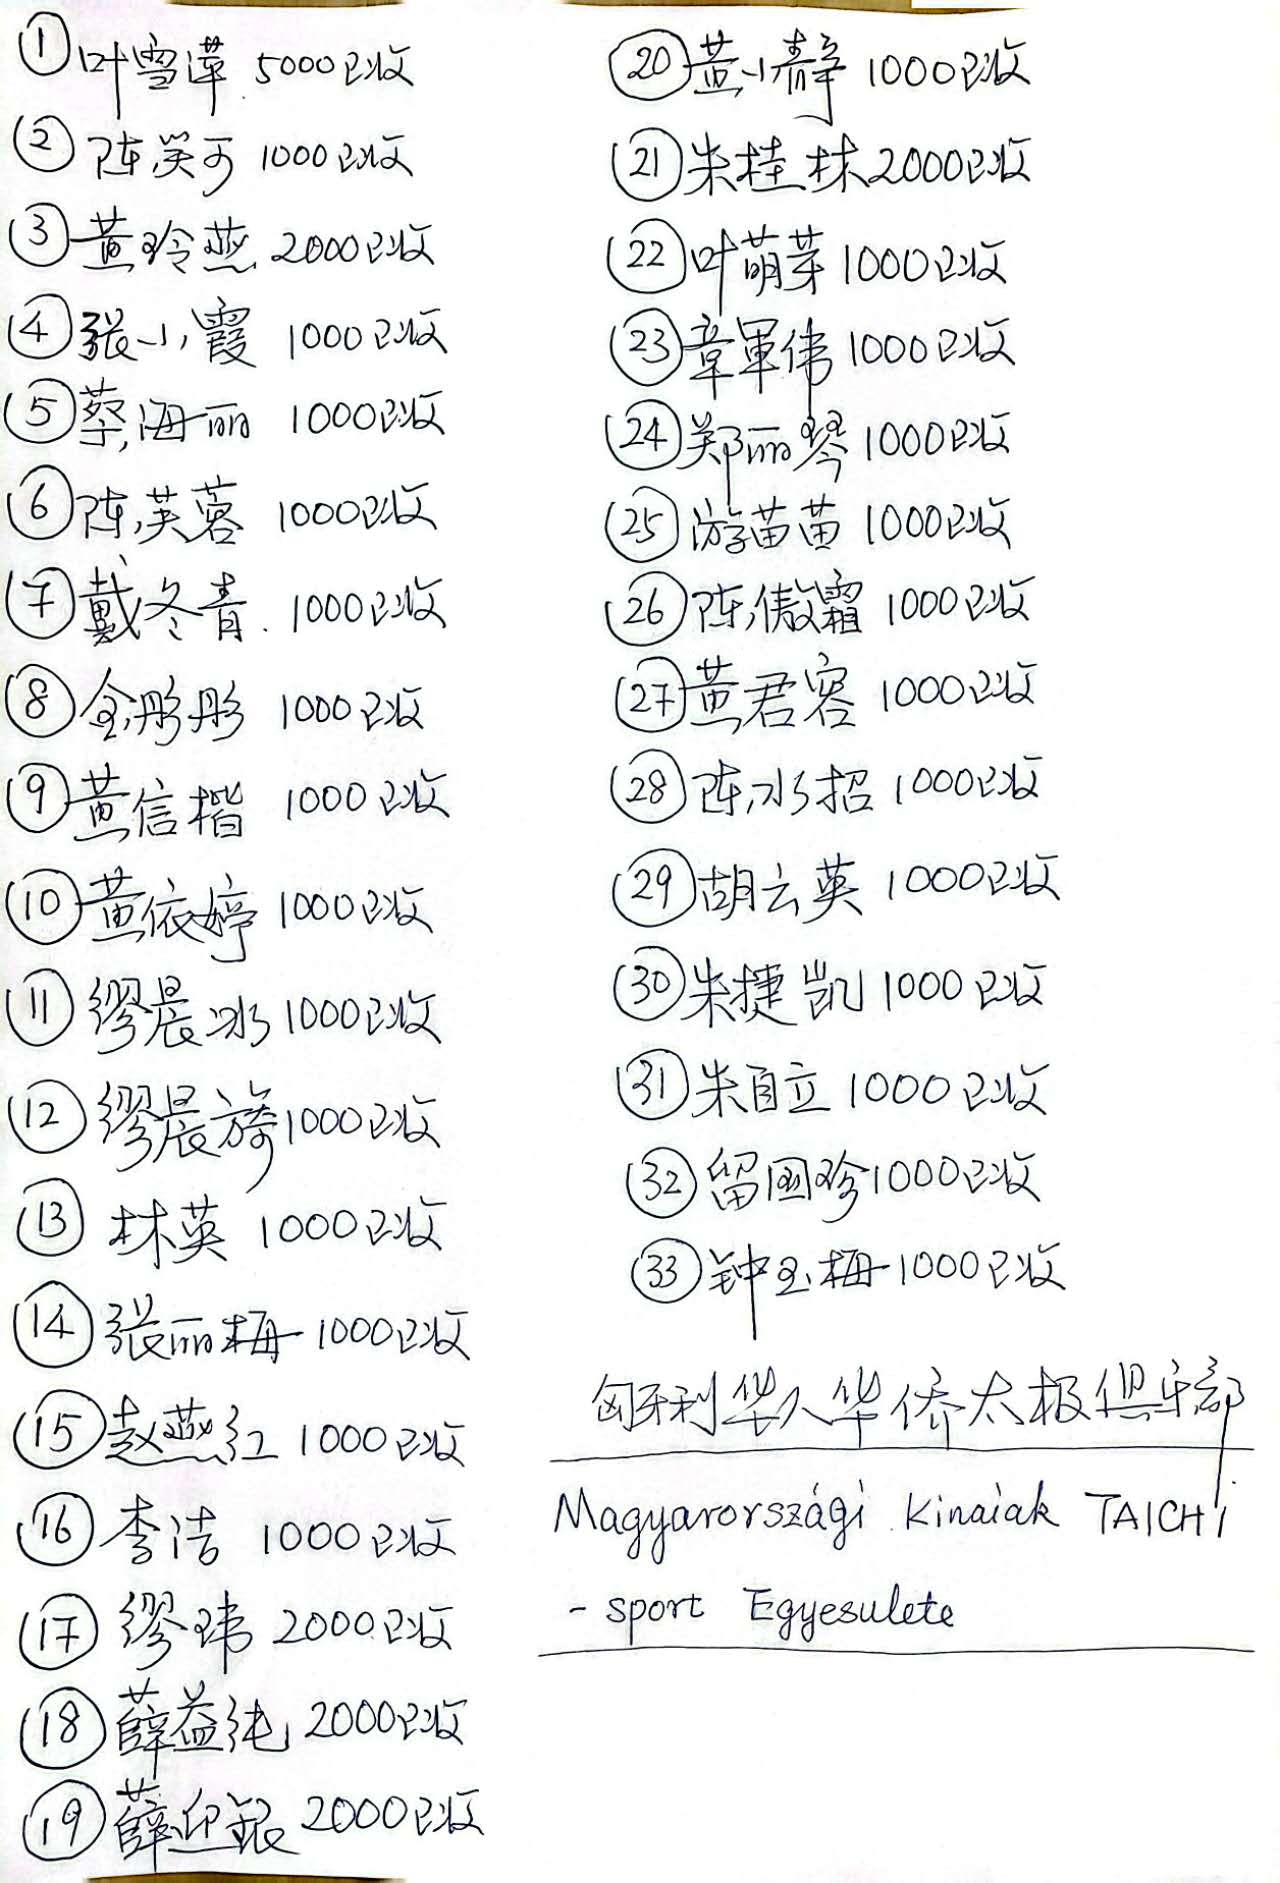 ① 叶雪萍 5000已收
② 陈笑可 1000已收
③ 黄玲燕 2000已收
④ 張小霞 1000已收
⑤ 蔡海丽 1000已收
⑥ 陈芙蓉 1000已收
⑦ 戴冬青. 1000已收
⑧ 金彤彤 1000已收
⑨ 黄信楷 1000已收
⑩ 黄依婷 1000已收
⑪ 缪晨冰 1000已收
⑫ 缪晨旖 1000已收
⑬ 林英 1000已收
⑭ 張丽梅 1000已收
⑮ 赵燕红 1000已收
⑯ 李洁 1000已收
⑰ 缪玮 2000已收
⑱ 薛益纯 2000已收
⑲ 薛迎銀 2000已收
⑳ 黄小静 1000已收
㉑ 朱桂林 2000已收
㉒ 叶萌芽 1000已收
㉓ 章軍伟 1000已收
㉔ 郑丽琴 1000已收
㉕ 游苗苗 1000已收
㉖ 陈傲霜 1000已收
㉗ 黄君容 1000已收
㉘ 陈水招 1000已收
㉙ 胡云英 1000已收
㉚ 朱捷凯 1000已收
㉛ 朱自立 1000已收
㉜ 留国珍 1000已收
㉝ 钟玉梅 1000已收
匈牙利华人华侨太极俱乐部
Magyarországi Kinaiak TAICHI
- sport Egyesulete